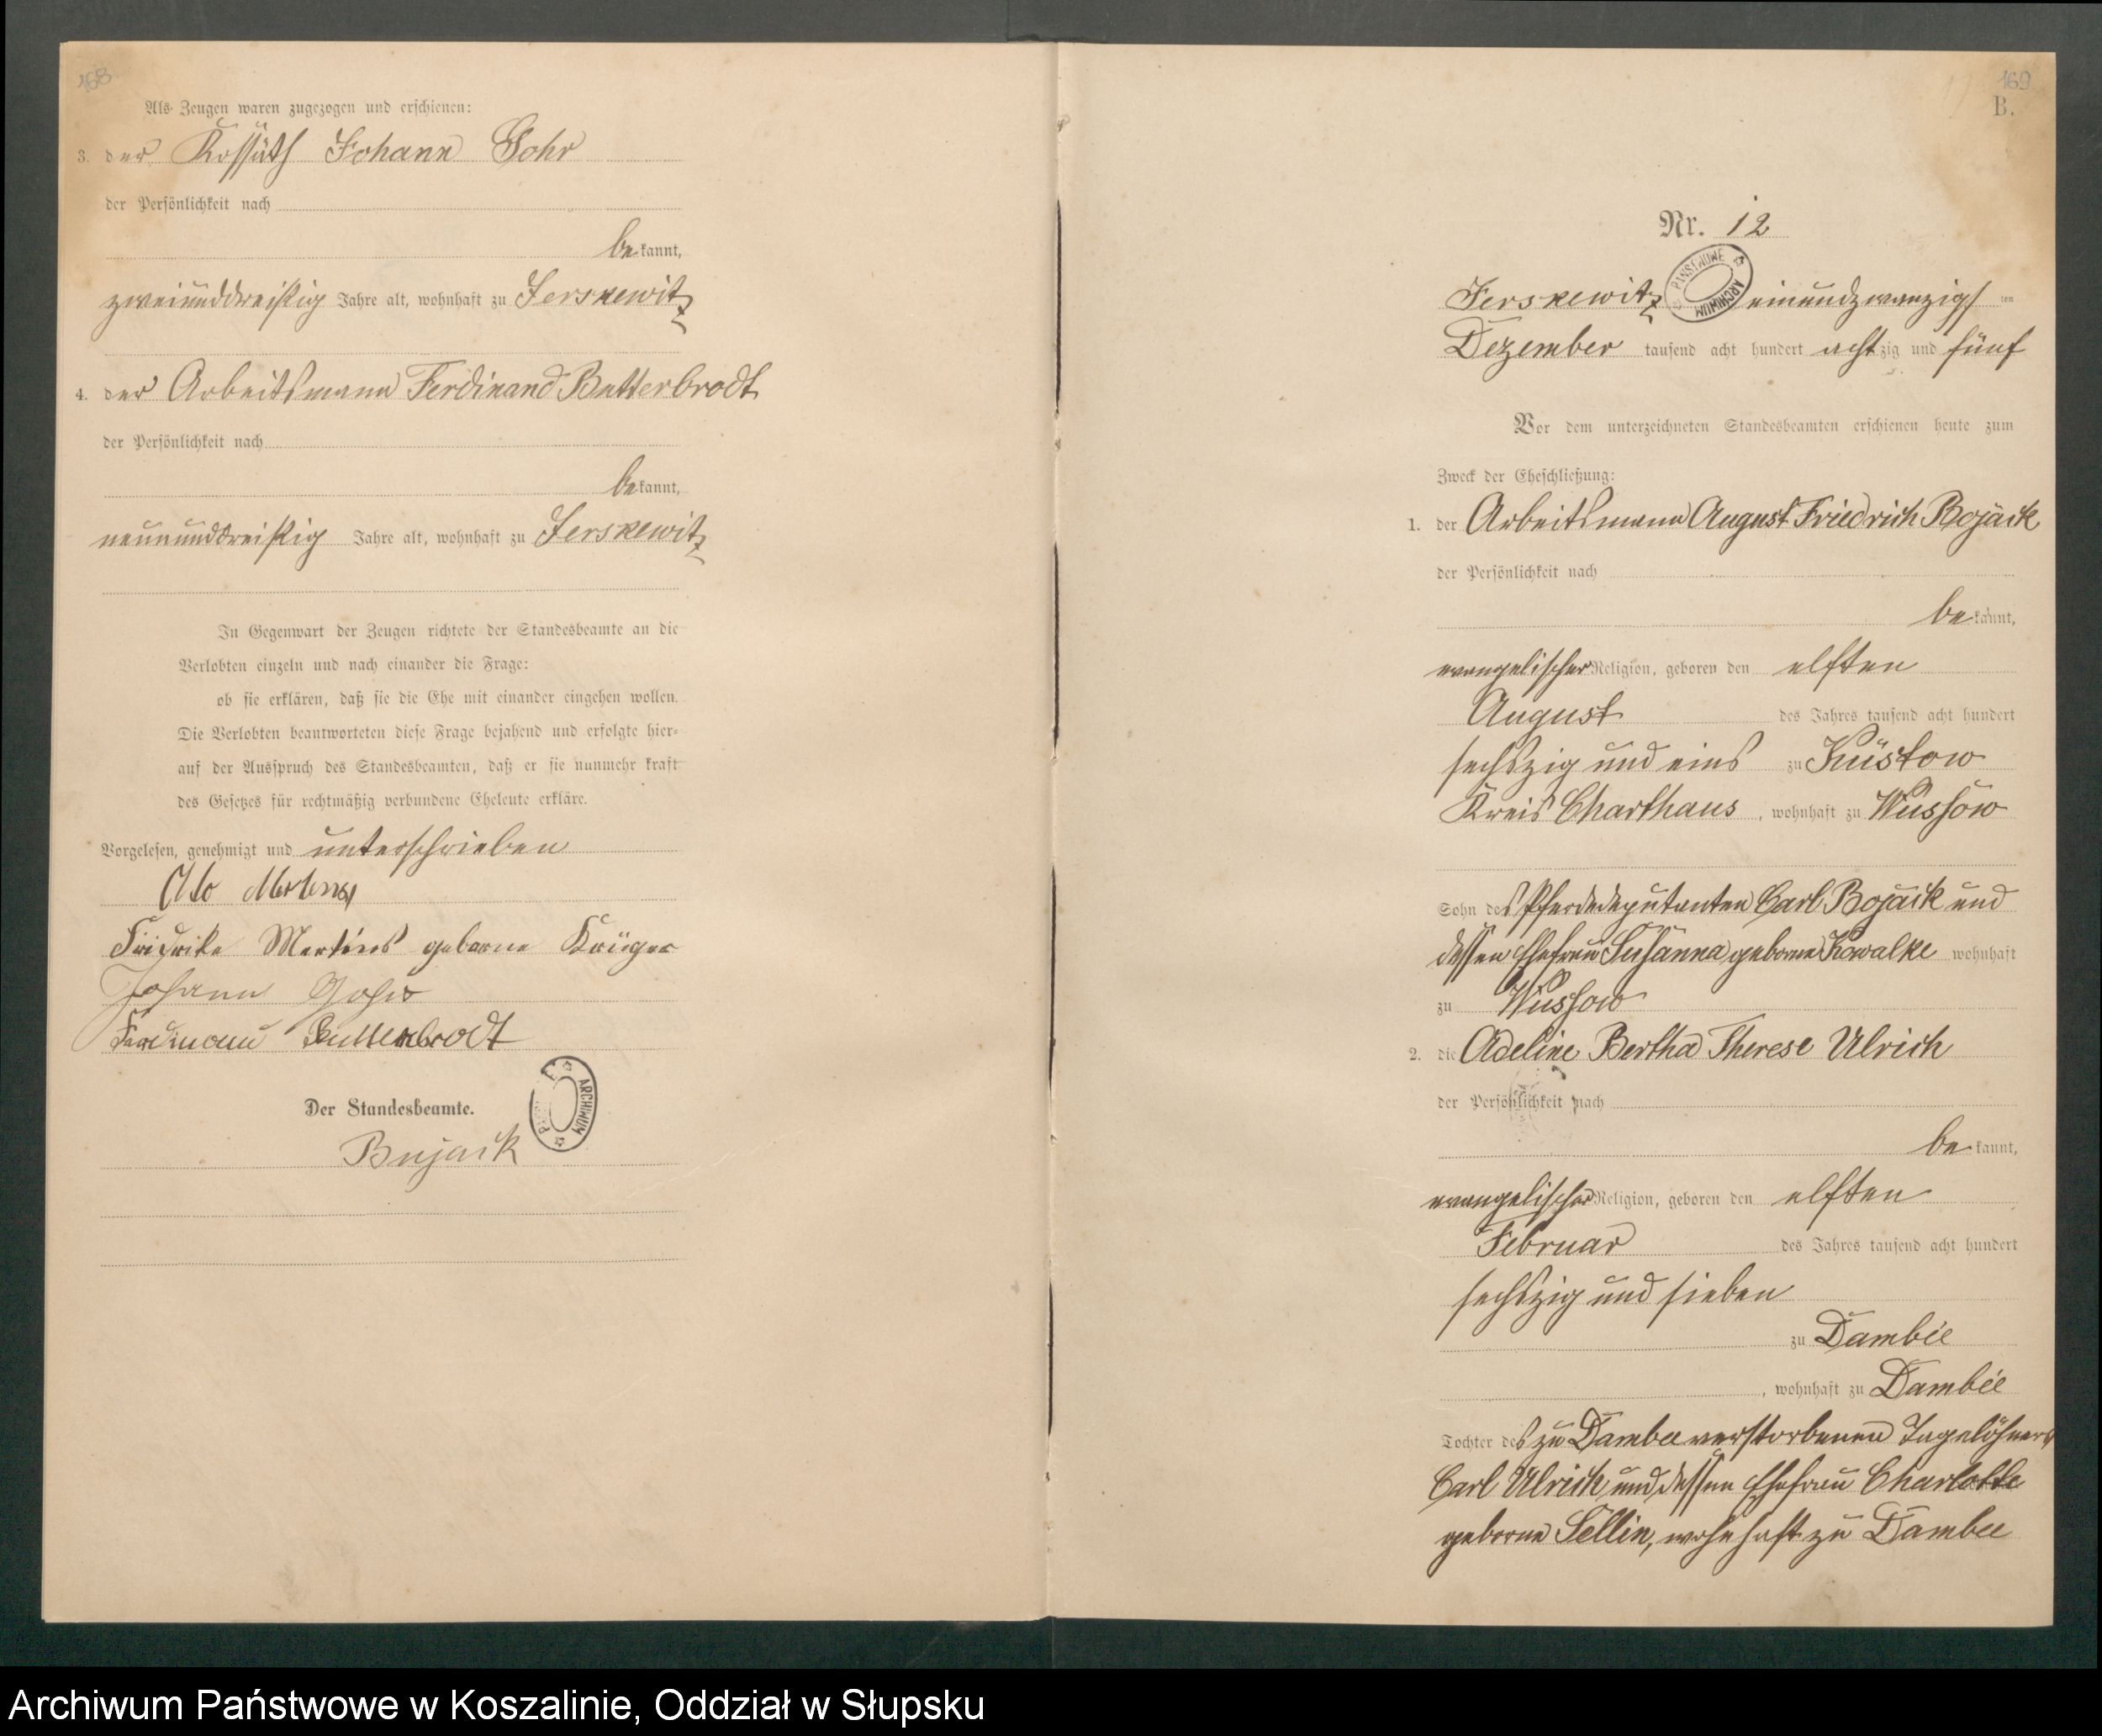 168
Als Zeugen waren zugezogen und erschienen:
3. der Kossäth Johann Gohr
der Persönlichkeit nach
bekannt,
zweiunddreißig Jahre alt, wohnhaft zu Jerskewitz
4. der Arbeitsmann Ferdinand Butterbrodt
der Persönlichkeit nach
bekannt,
neununddreißig Jahre alt, wohnhaft zu Jerskewitz
In Gegenwart der Zeugen richtete der Standesbeamte an die
Verlobten einzeln und nach einander die Frage:
ob sie erklären, daß sie die Ehe mit einander eingehen wollen.
Die Verlobten beantworteten diese Frage bejahend und erfolgte hier-
auf der Ausspruch des Standesbeamten, daß er sie nunmehr kraft
des Gesetzes für rechtmäßig verbundene Eheleute erkläre.
Vorgelesen, genehmigt und unterschrieben
Otto Mertens
Fridrike Mertens geborne Krüger
Johann Gohr
Ferdinand Butterbrodt
Der Standesbeamte.
ARCHIWUM
Bujack
169
B.
Nr. 12
PAŃSTWOWE ARCHIWUM
Jerskewitz einundzwanzigsten
Dezember tausend acht hundert achtzig und fünf
Vor dem unterzeichneten Standesbeamten erschienen heute zum
Zweck der Eheschließung:
1. der Arbeitsmann August Friedrich Bojack
der Persönlichkeit nach
bekannt,
evangelischer Religion, geboren den elften
August des Jahres tausend acht hundert
sechszig und eins zu Küstow
Kreis Charthaus, wohnhaft zu Wussow
Sohn des Pferdedeputanten Carl Bojack und
dessen Ehefrau Susanna geborne Kowalke wohnhaft
zu Wussow
2. die Adeline Bertha Therese Ulrich
der Persönlichkeit nach
bekannt,
evangelischer Religion, geboren den elften
Februar des Jahres tausend acht hundert
sechszig und sieben
zu Dambee
, wohnhaft zu Dambee
Tochter des zu Dambee verstorbenen Tagelöhners
Carl Ulrich und dessen Ehefrau Charlotte
geborne Sellin, wohnhaft zu Dambee
Archiwum Państwowe w Koszalinie, Oddział w Słupsku